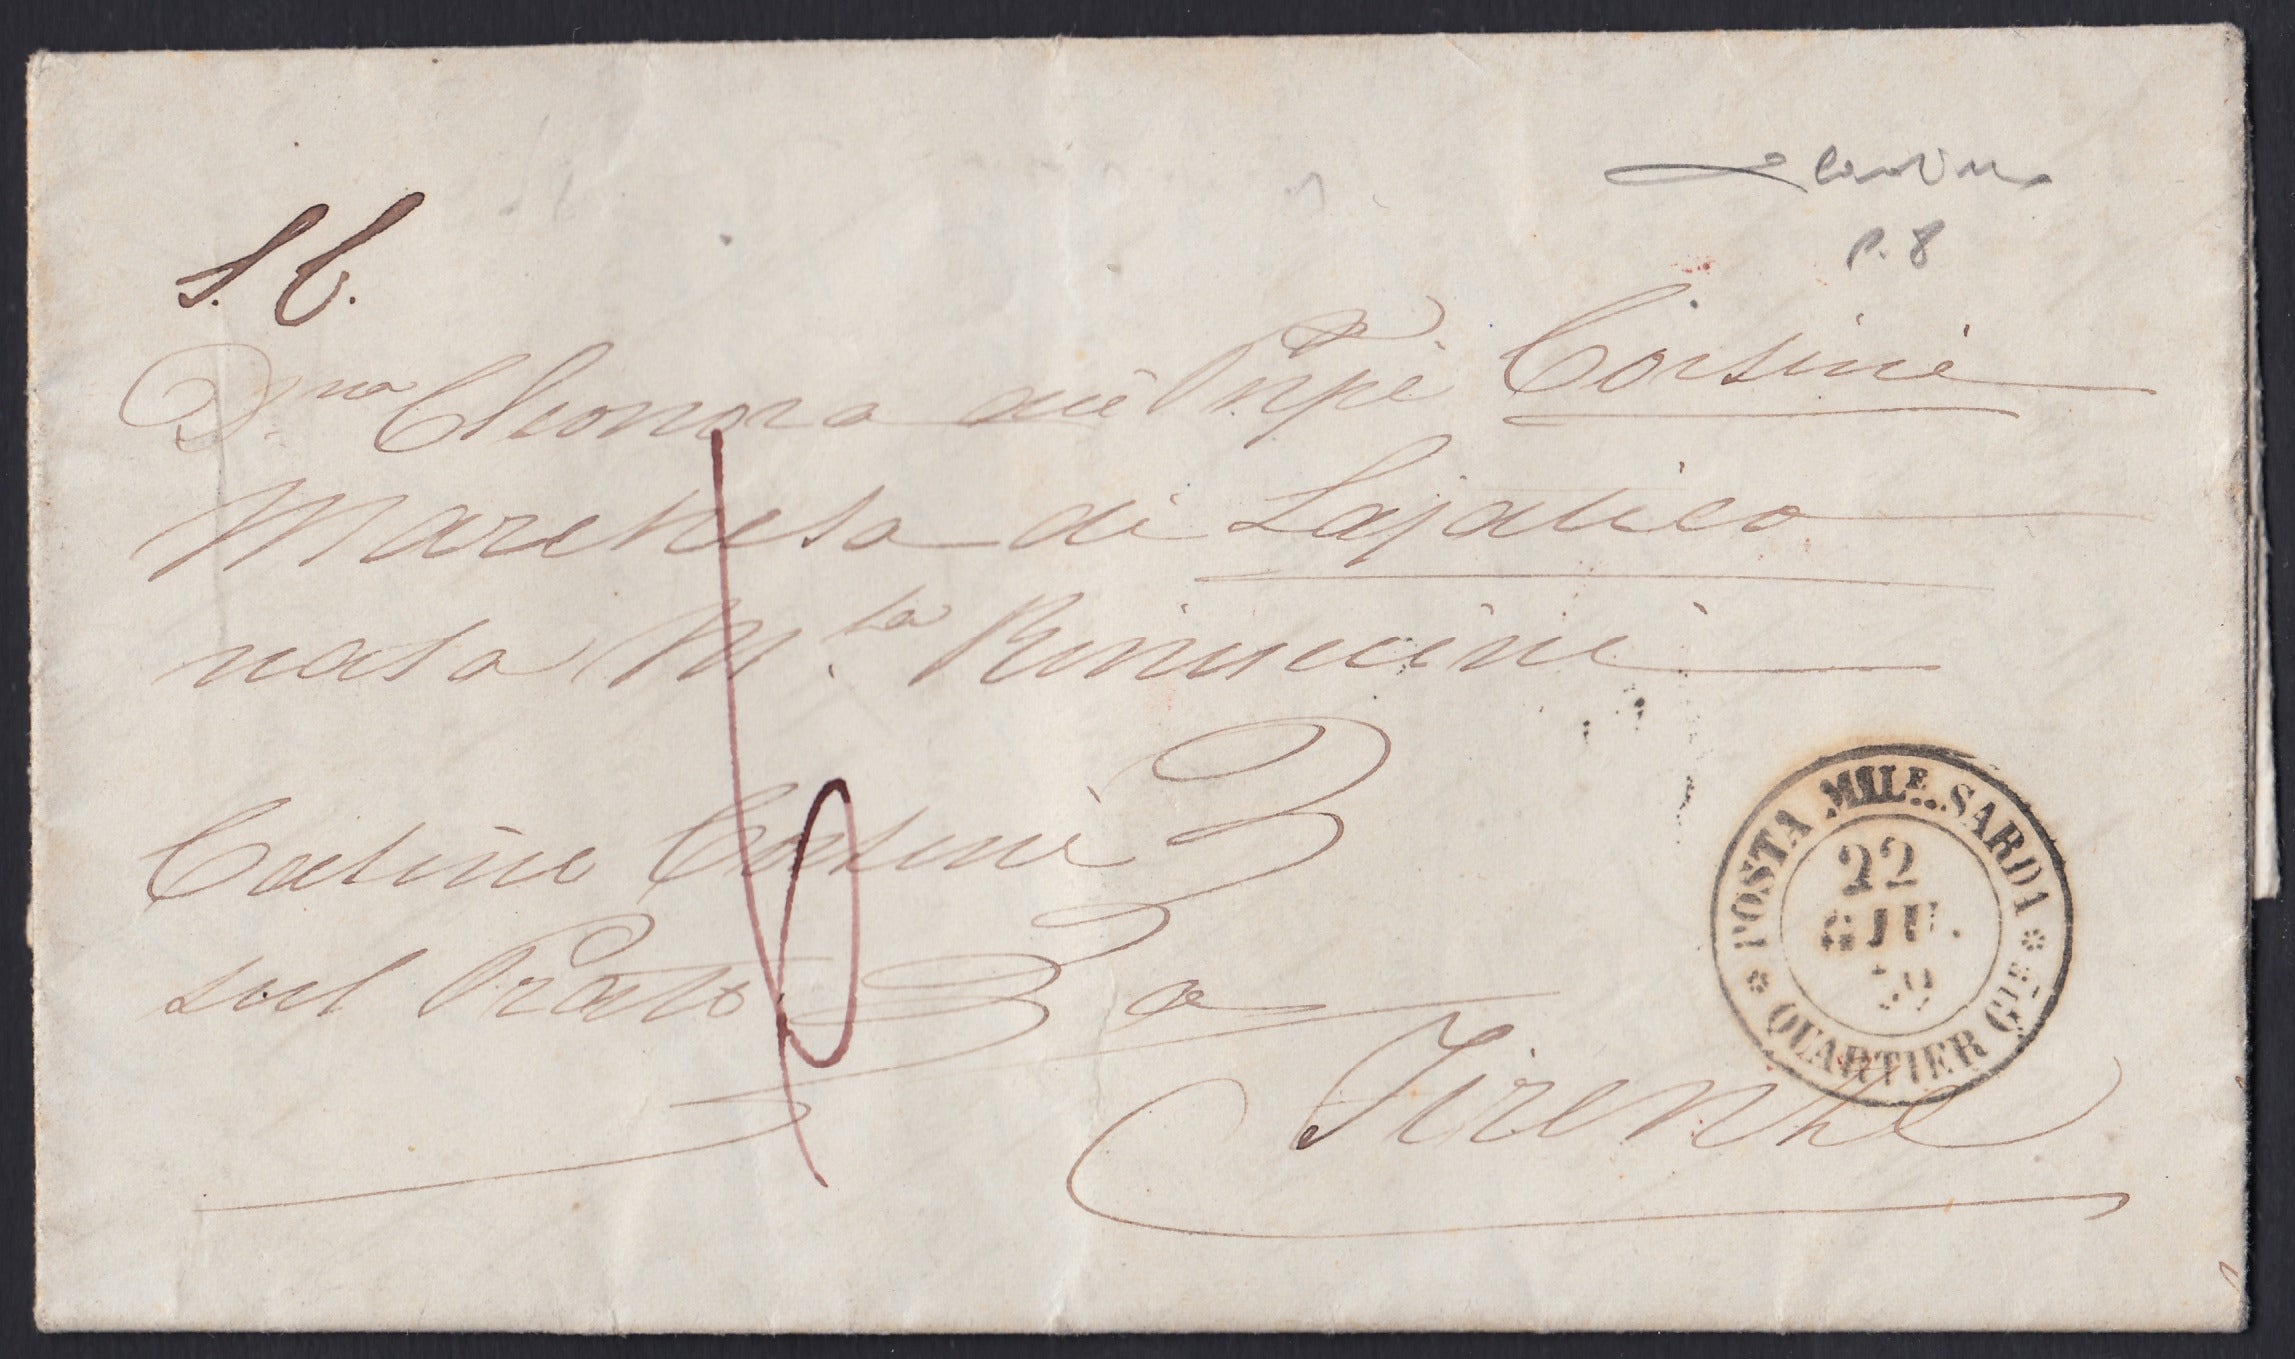 S. C.
D.na Eleonora dei Prpi Corsini
Marchesa di Lajatico
nata M.sa Rinuccini
Casino Corsini
sul Prato
a
Firenze
POSTA MILE. SARDA
22
GIU.
59
QUARTIER GLE
P. 8